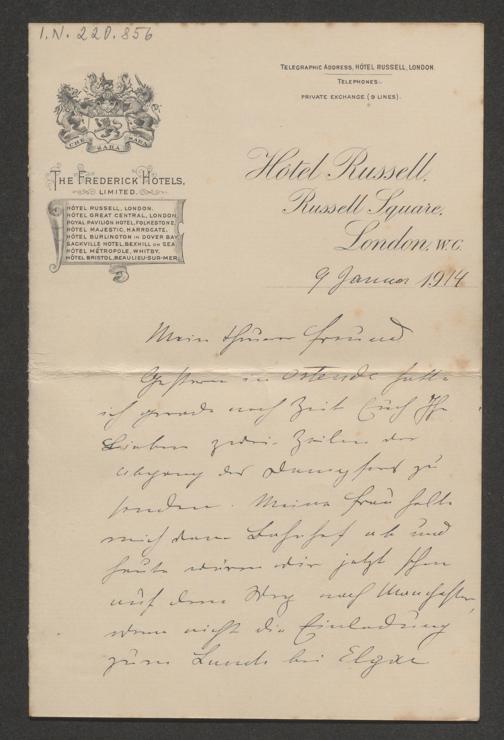 I.N. 220.856
TELEGRAPHIC ADDRESS, HÔTEL RUSSELL, LONDON.
TELEPHONES:-
PRIVATE EXCHANGE (9 LINES).
CHE SARA SARA
THE FREDERICK HOTELS,
LIMITED.
HÔTEL RUSSELL, LONDON.
HÔTEL GREAT CENTRAL, LONDON.
ROYAL PAVILION HOTEL, FOLKESTONE.
HÔTEL MAJESTIC, HARROGATE.
HÔTEL BURLINGTON IN DOVER BAY
SACKVILLE HOTEL, BEXHILL ON SEA
HÔTEL MÉTROPOLE, WHITBY.
HÔTEL BRISTOL, BEAULIEU-SUR-MER.
Hôtel Russell,
Russell Square,
London, W.C.
9 Januar 1914
Mein theurer Freund
Gestern in Ostende hatte
ich gerade noch Zeit Euch Ihr
Lieben zwei Zeilen vor
Abgang des Dampfers zu
senden. Meine Frau holte
mich vom Bahnhof ab und
heute wären wir jetzt schon
auf dem Weg nach Manchester,
wenn nicht die Einladung
zum Lunch bei Elgar